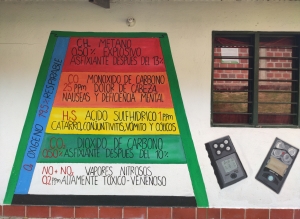 CH₄ METANO
0.50% EXPLOSIVO
ASFIXIANTE DESPUES DEL 13%
CO. MONOXIDO DE CARBONO
25 PPM DOLOR DE CABEZA
NAUSEAS Y DEFICENCIA MENTAL
H₂S ACIDO SULFHIDRICO 1 PPM
CATARRO, CONJUNTIVITIS, VOMITO Y COLICOS
CO₂ DIOXIDO DE CARBONO
0.50% ASFIXIANTE DESPUES DEL 10%
NO + NO₂ VAPORES NITROSOS
0.2 PPM ALTAMENTE TOXICO - VENENOSO
O₂ OXIGENO 19.5% RESPIRABLE